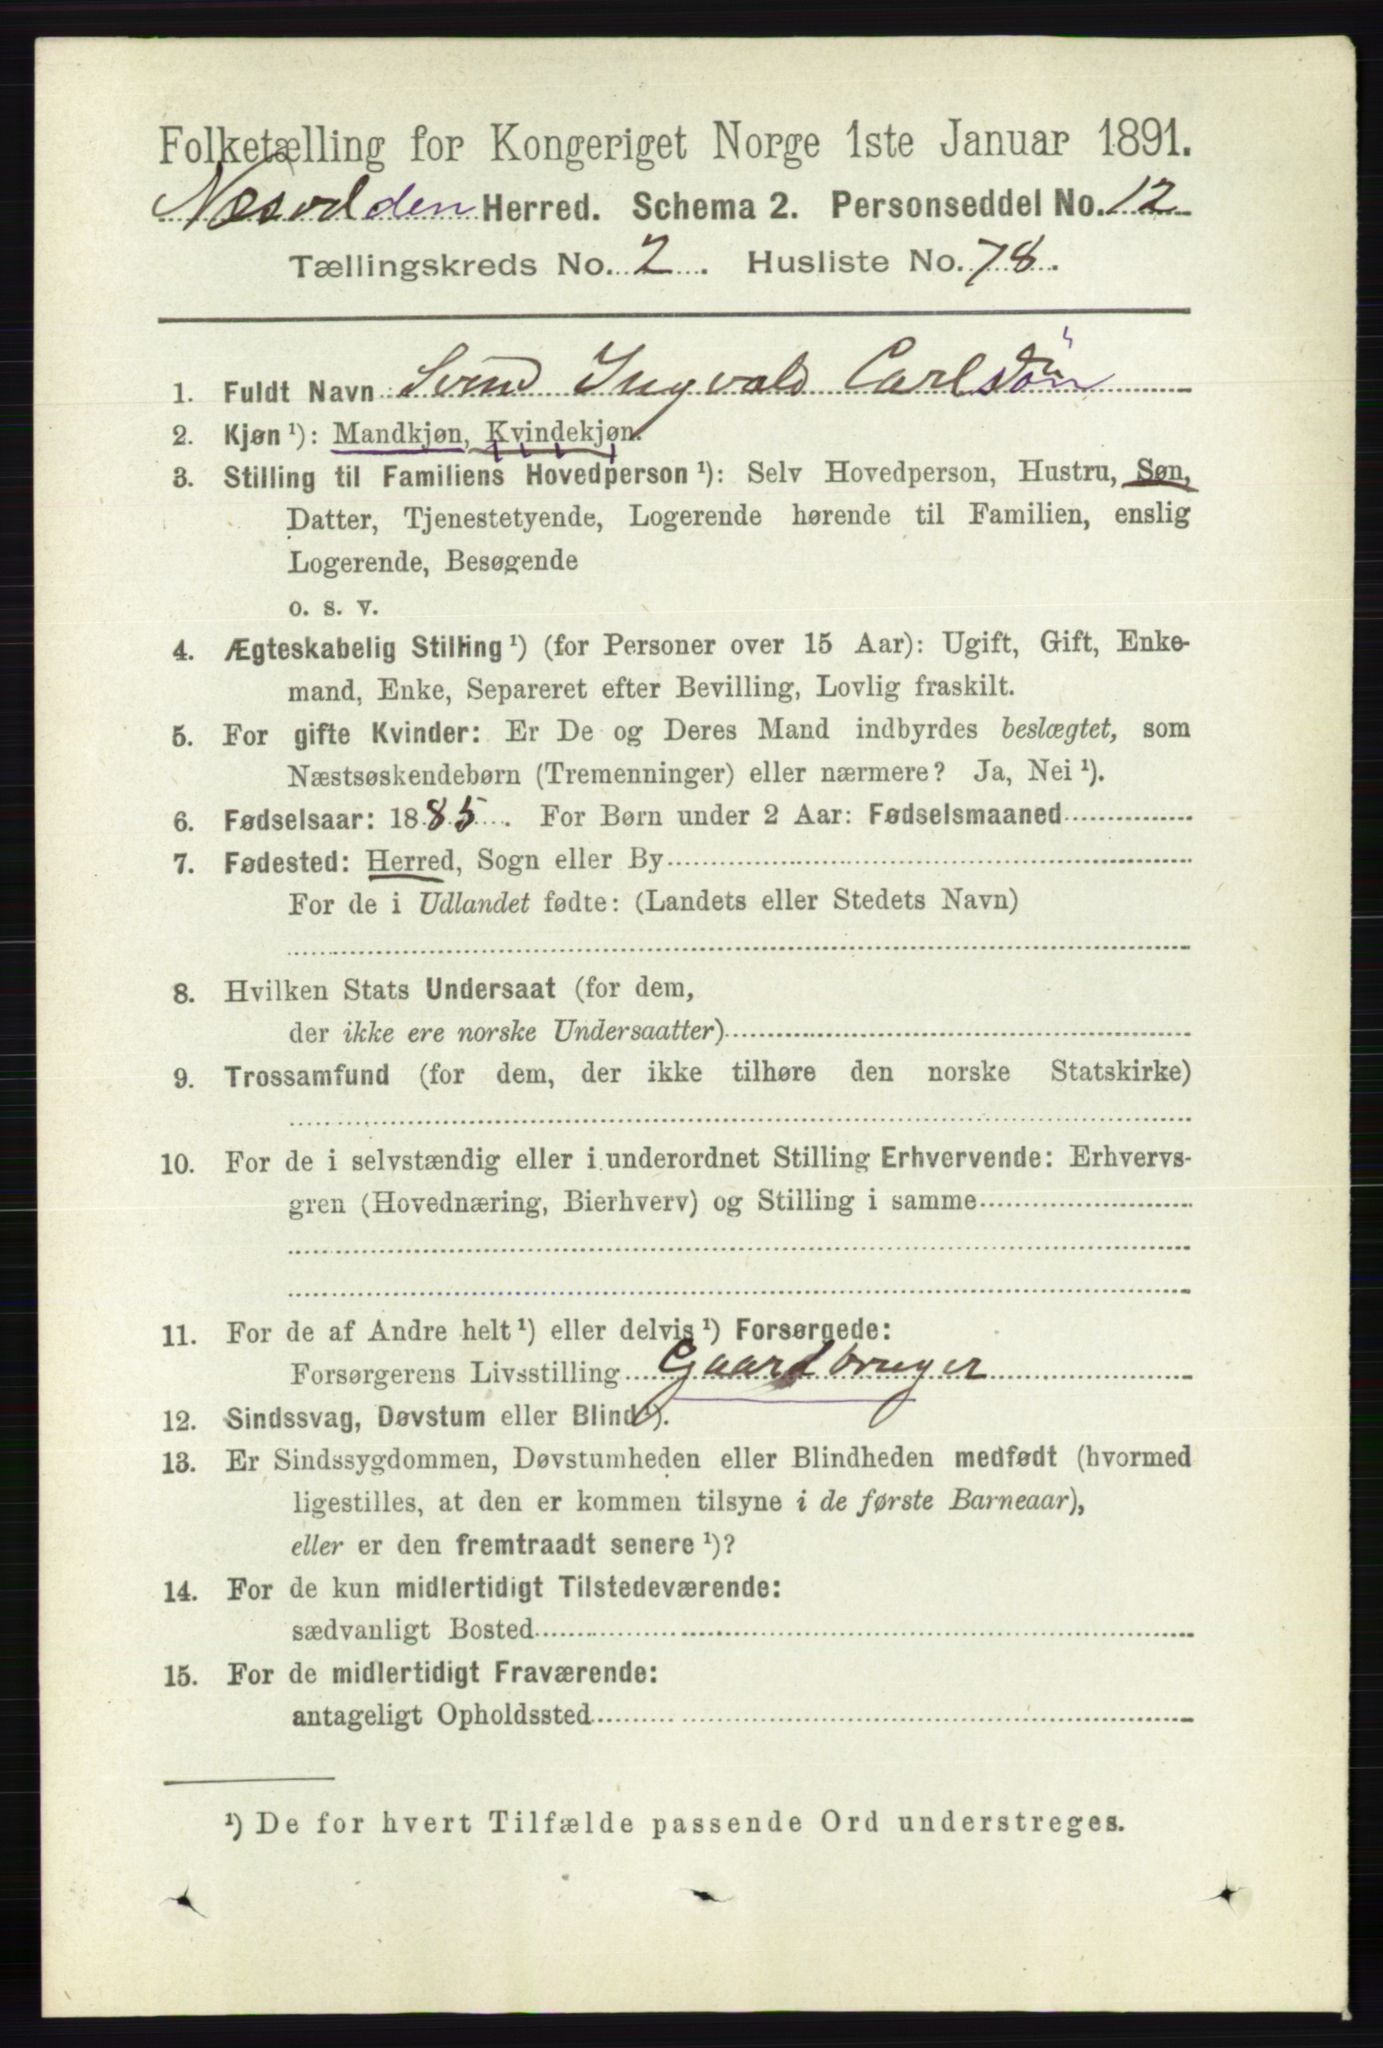 Folketælling for Kongeriget Norge 1ste Januar 1891.
Næsodden Herred. Schema 2. Personseddel No. 12
Tællingskreds No. 2. Husliste No. 78.
1. Fuldt Navn Svend Ingvald Carlsøn
2. Kjøn ¹): Mandkjøn, Kvindekjøn.
3. Stilling til Familiens Hovedperson ¹): Selv Hovedperson, Hustru, Søn,
Datter, Tjenestetyende, Logerende hørende til Familien, enslig
Logerende, Besøgende
o. s. v.
4. Ægteskabelig Stilling ¹) (for Personer over 15 Aar): Ugift, Gift, Enke-
mand, Enke, Separeret efter Bevilling, Lovlig fraskilt.
5. For gifte Kvinder: Er De og Deres Mand indbyrdes beslægtet, som
Næstsøskendebørn (Tremenninger) eller nærmere? Ja, Nei ¹).
6. Fødselsaar: 1885. For Børn under 2 Aar: Fødselsmaaned
7. Fødested: Herred, Sogn eller By
For de i Udlandet fødte: (Landets eller Stedets Navn)
8. Hvilken Stats Undersaat (for dem,
der ikke ere norske Undersaatter)
9. Trossamfund (for dem, der ikke tilhøre den norske Statskirke)
10. For de i selvstændig eller i underordnet Stilling Erhvervende: Erhvervs-
gren (Hovednæring, Bierhverv) og Stilling i samme
11. For de af Andre helt ¹) eller delvis ¹) Forsørgede:
Forsørgerens Livsstilling Gaardbruger
12. Sindssvag, Døvstum eller Blind ¹).
13. Er Sindssygdommen, Døvstumheden eller Blindheden medfødt (hvormed
ligestilles, at den er kommen tilsyne i de første Barneaar),
eller er den fremtraadt senere ¹)?
14. For de kun midlertidigt Tilstedeværende:
sædvanligt Bosted
15. For de midlertidigt Fraværende:
antageligt Opholdssted
¹) De for hvert Tilfælde passende Ord understreges.